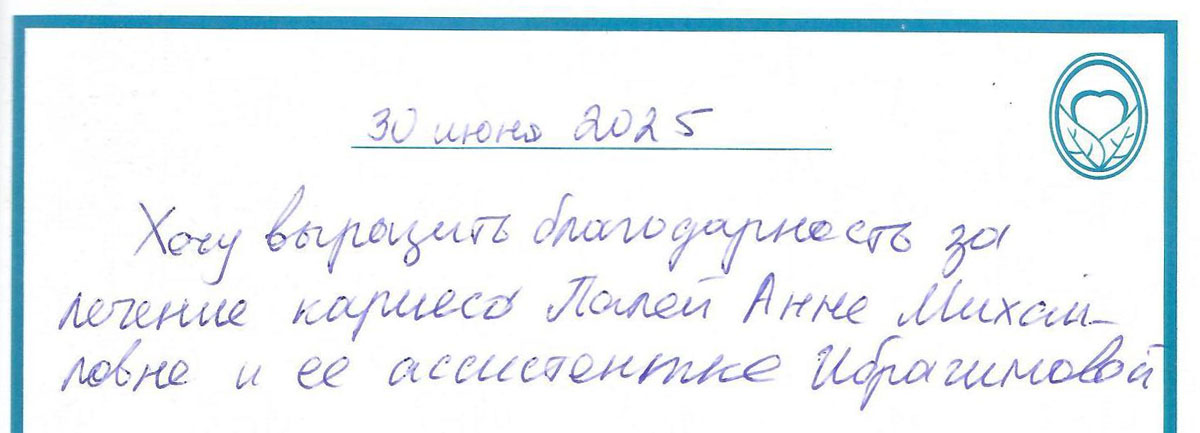 30 июня 2025
Хочу выразить благодарность за
лечение кариеса Палей Анне Михай-
ловне и ее ассистентке Ибрагимовой